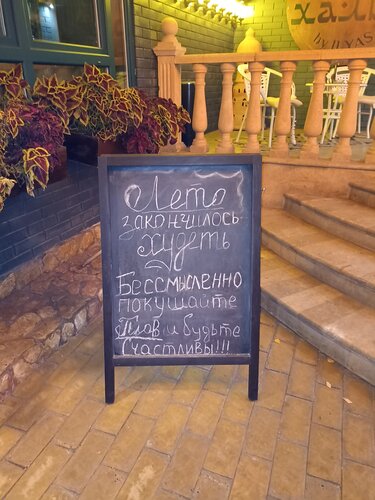 Лето
закончилось
худеть
Бессмысленно
покушайте
Плов и будьте
Счастливы!!!